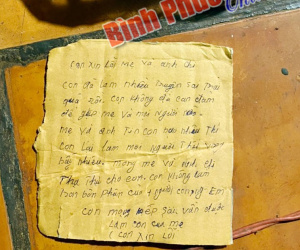 Bình Phước
Con xin lỗi mẹ và anh chị
con đã làm nhiều chuyện sai trái
quá rồi. con không đủ can đảm
để gặp mẹ và mọi người
mẹ và anh tin con bao nhiêu thì
con lại làm mọi người thất vọng
bấy nhiêu. mong mẹ và anh chị
Tha thứ cho con, con không làm
tròn bổn phận của 1 người em
con mong kiếp sau vẫn được
Làm con của mẹ
Con xin lỗi